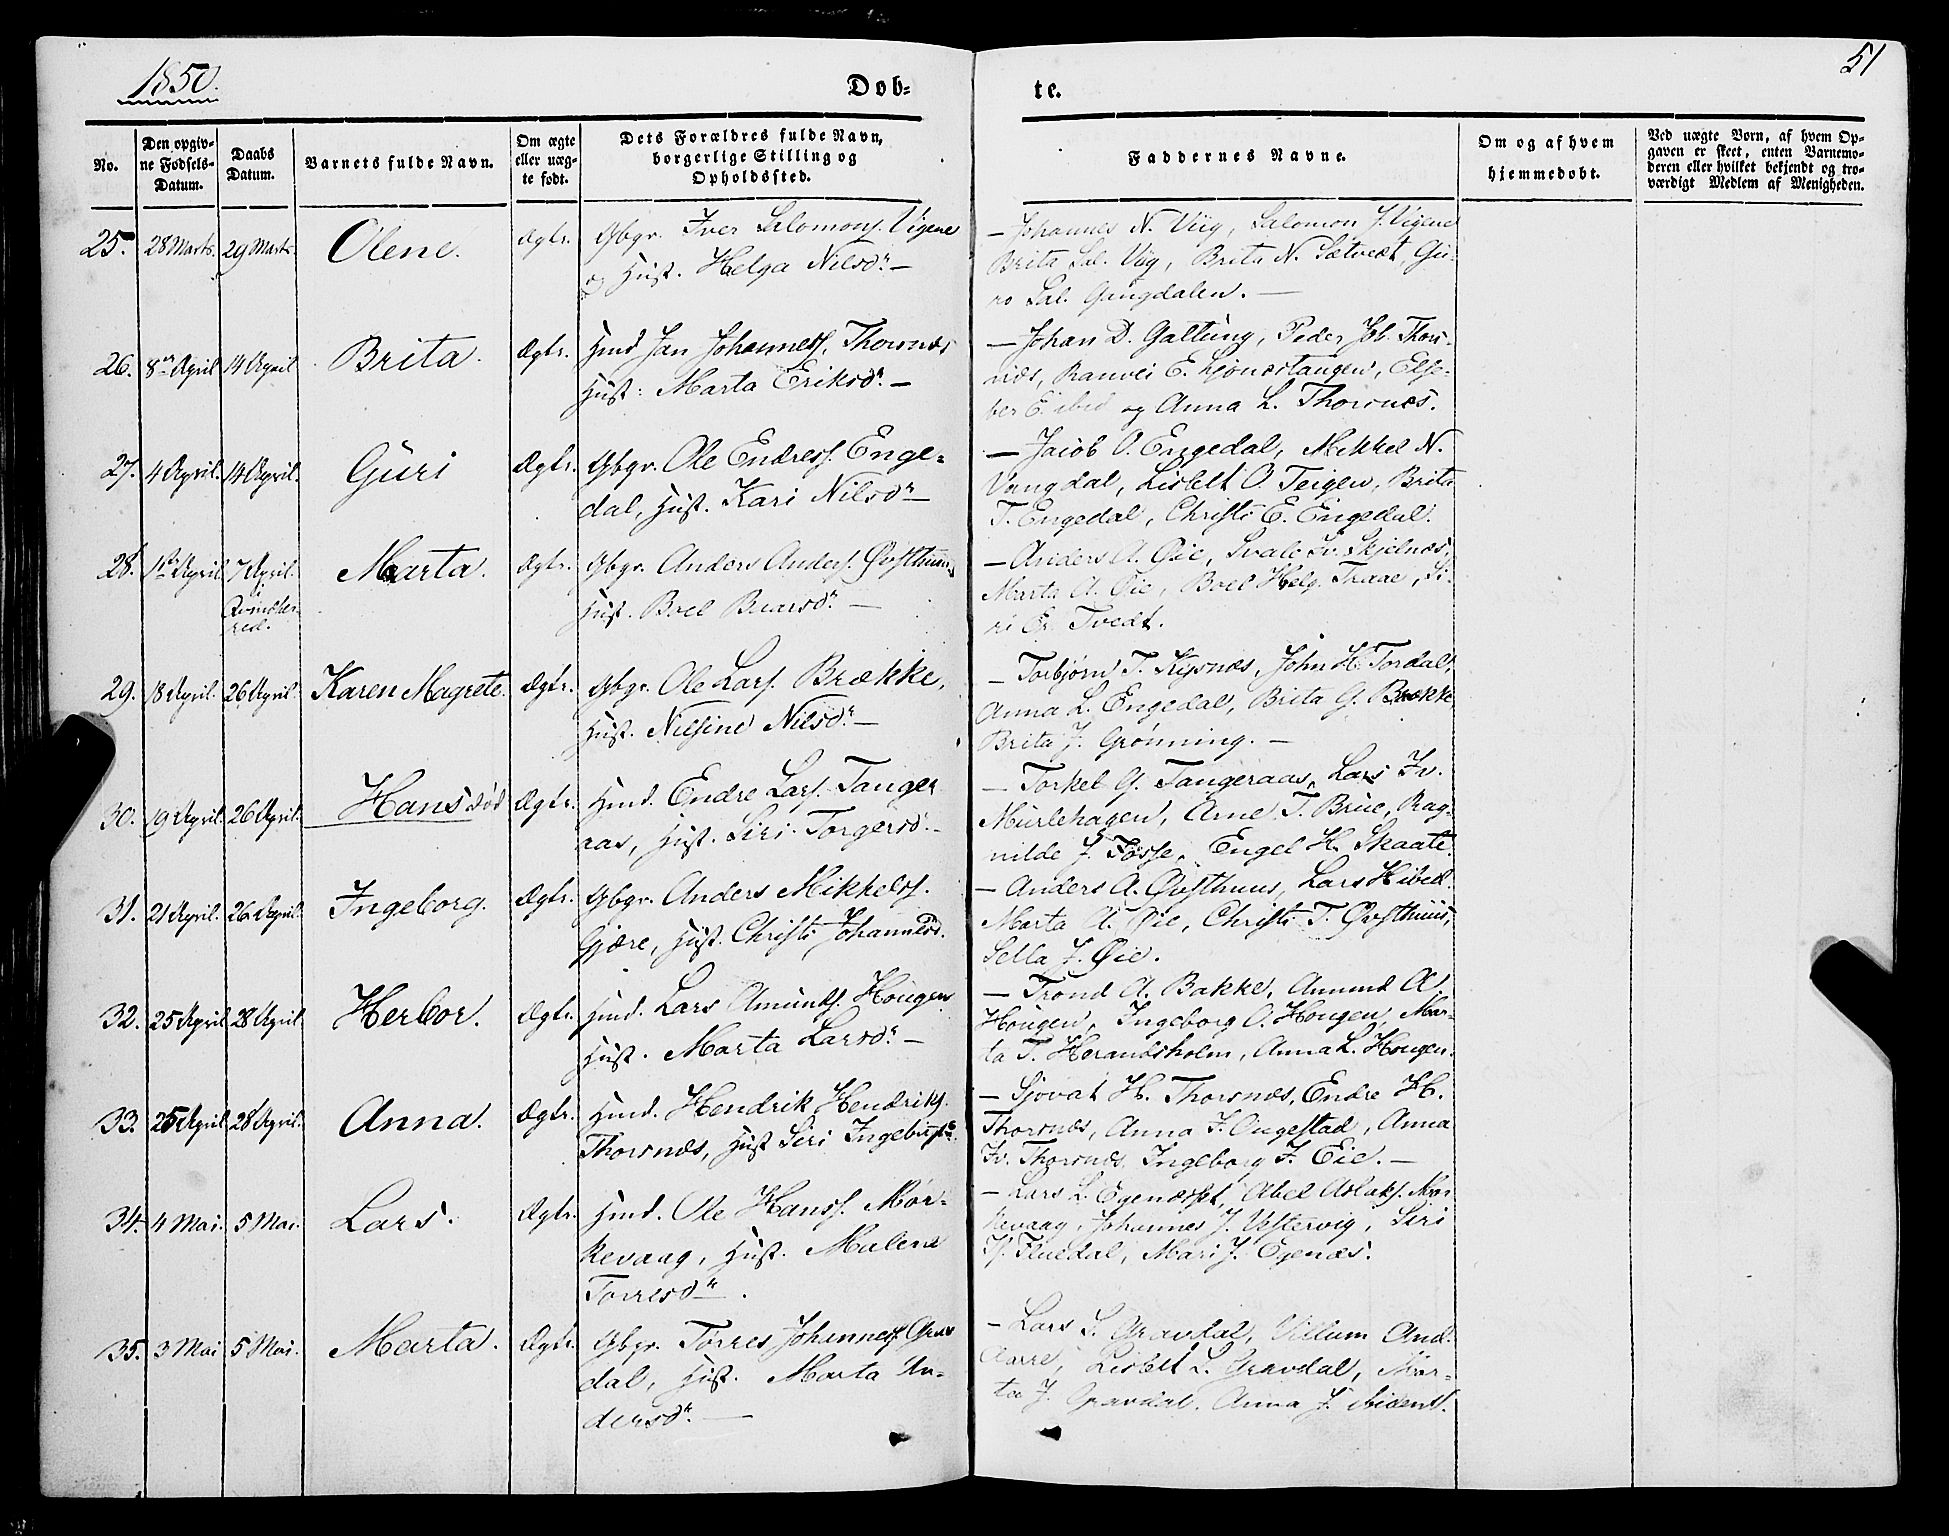 1850.
Døb-
te.
51
No.
Den opgiv-
ne Fødsels-
Datum.
Daabs
Datum.
Barnets fulde Navn.
Om ægte
eller uæg-
te født.
Dets Forældres fulde Navn,
borgerlige Stilling og
Opholdssted.
Faddernes Navne.
Om og af hvem
hjemmedøbt.
Ved uægte Børn, af hvem Op-
gaven er skeet, enten Barnemo-
deren eller hvilket bekjendt og tro-
værdigt Medlem af Menigheden.
25. 28 Marts. 29 Marts. Olene. Ægte. Gbgr. Iver Salomons. Vigene
og Hust. Helga Nilsdr. —
— Johannes N. Viig, Salomon J. Vigene
Brita Sal. Viig, Brita N. Sætvedt, Gu-
ro Sal. Gangdalen. —
26. 8de April 14 April Brita. Ægte. Hmd Jan Johanness. Thorsnæs
Hust: Marta Eriksdr. —
— Johan D. Galtung, Peder Joh. Thors-
næs, Ranvei E. Ljonæstangen, Else-
ber E. ibid og Anna L. Thorsnæs.
27. 4 April. 14 April. Guri Ægte. Gbgr. Ole Endress. Enge-
dal, Hust. Kari Nilsdr —
— Jacob O. Engedal, Mikkel N.
Vangdal, Lisbet O Teigen, Brita
T. Engedal, Christi E. Engedal.
28. 1ste April 7 April. Marta. Ægte. Gbgr. Anders Anders. Øvsthuus
i
Qvindher
red.
Hust. Boel Bearsdr. —
— Anders A. Øie, Svale Iv. Skjelnæs,
Marta A. Øie, Boel Helg. Traae, Si-
ri Er. Tvedt.
29. 18 April. 26 April. Karen Magrete. Ægte. Gbgr. Ole Lars. Brække,
Hust. Nilsine Nilsdr. —
— Torbjørn T. Kysnæs, John H. Tordal,
Anna L. Engedal, Brita G. Brække
Brita J. Grønning. —
30. 19 April. 26 April. Hans død Ægte. Hmd. Endre Lars. Tanger
aas, Hust. Siri Torgersd. —
— Torkel G. Tangeraas, Lars Iv.
Murlehagen, Arne T. Brue, Rag-
nilde J. Fosse, Engel H. Skaate.
31. 21 April. 26 April. Ingeborg. Ægte. Gbgr. Anders Mikkels.
Gjære, Hust. Christi Johannesd.
— Anders A. Øvsthuus, Lars H ibid.
Marta A. Øie, Christi T. Øvsthuus,
Sella J. Øie.
32. 25 April 28 April. Herbor. Ægte. Hmd. Lars Amunds. Hougen
Hust. Marta Larsdr. —
— Trond A. Bakke, Amund A.
Hougen, Ingeborg O. Hougen, Mar-
ta T. Herandsholm, Anna L. Hougen.
33. 25 April 28 April. Anna. Ægte. Hmd. Hendrik Hendriks.
Thorsnæs, Hust Siri
— Sjovat H. Thorsnæs, Endre H.
Thorsnæs, Anna J. Augestad, Anna
Iv. Thorsnæs, Ingeborg J. Eie. —
34. 4 Mai. 5 Mai. Lars. Ægte. Hmd. Ole Hanss. Mør-
kevaag, Hust. Malene
Torresdr.
— Lars L. Egenæsset, Abel Aslaks. Mør
kevaag, Johannes J. Vestervig, Siri
Fluedal, Mari J. Egenæs.
35. 3 Mai 5 Mai. Marta. Ægte. Gbgr. Tørres Johanness. Grav
dal, Hust. Marta An-
dersdr. —
— Lars S. Gravdal, Villum And.
Aarre, Lisbet L. Gravdal, Mar-
ta J. Gravdal, Anna J.